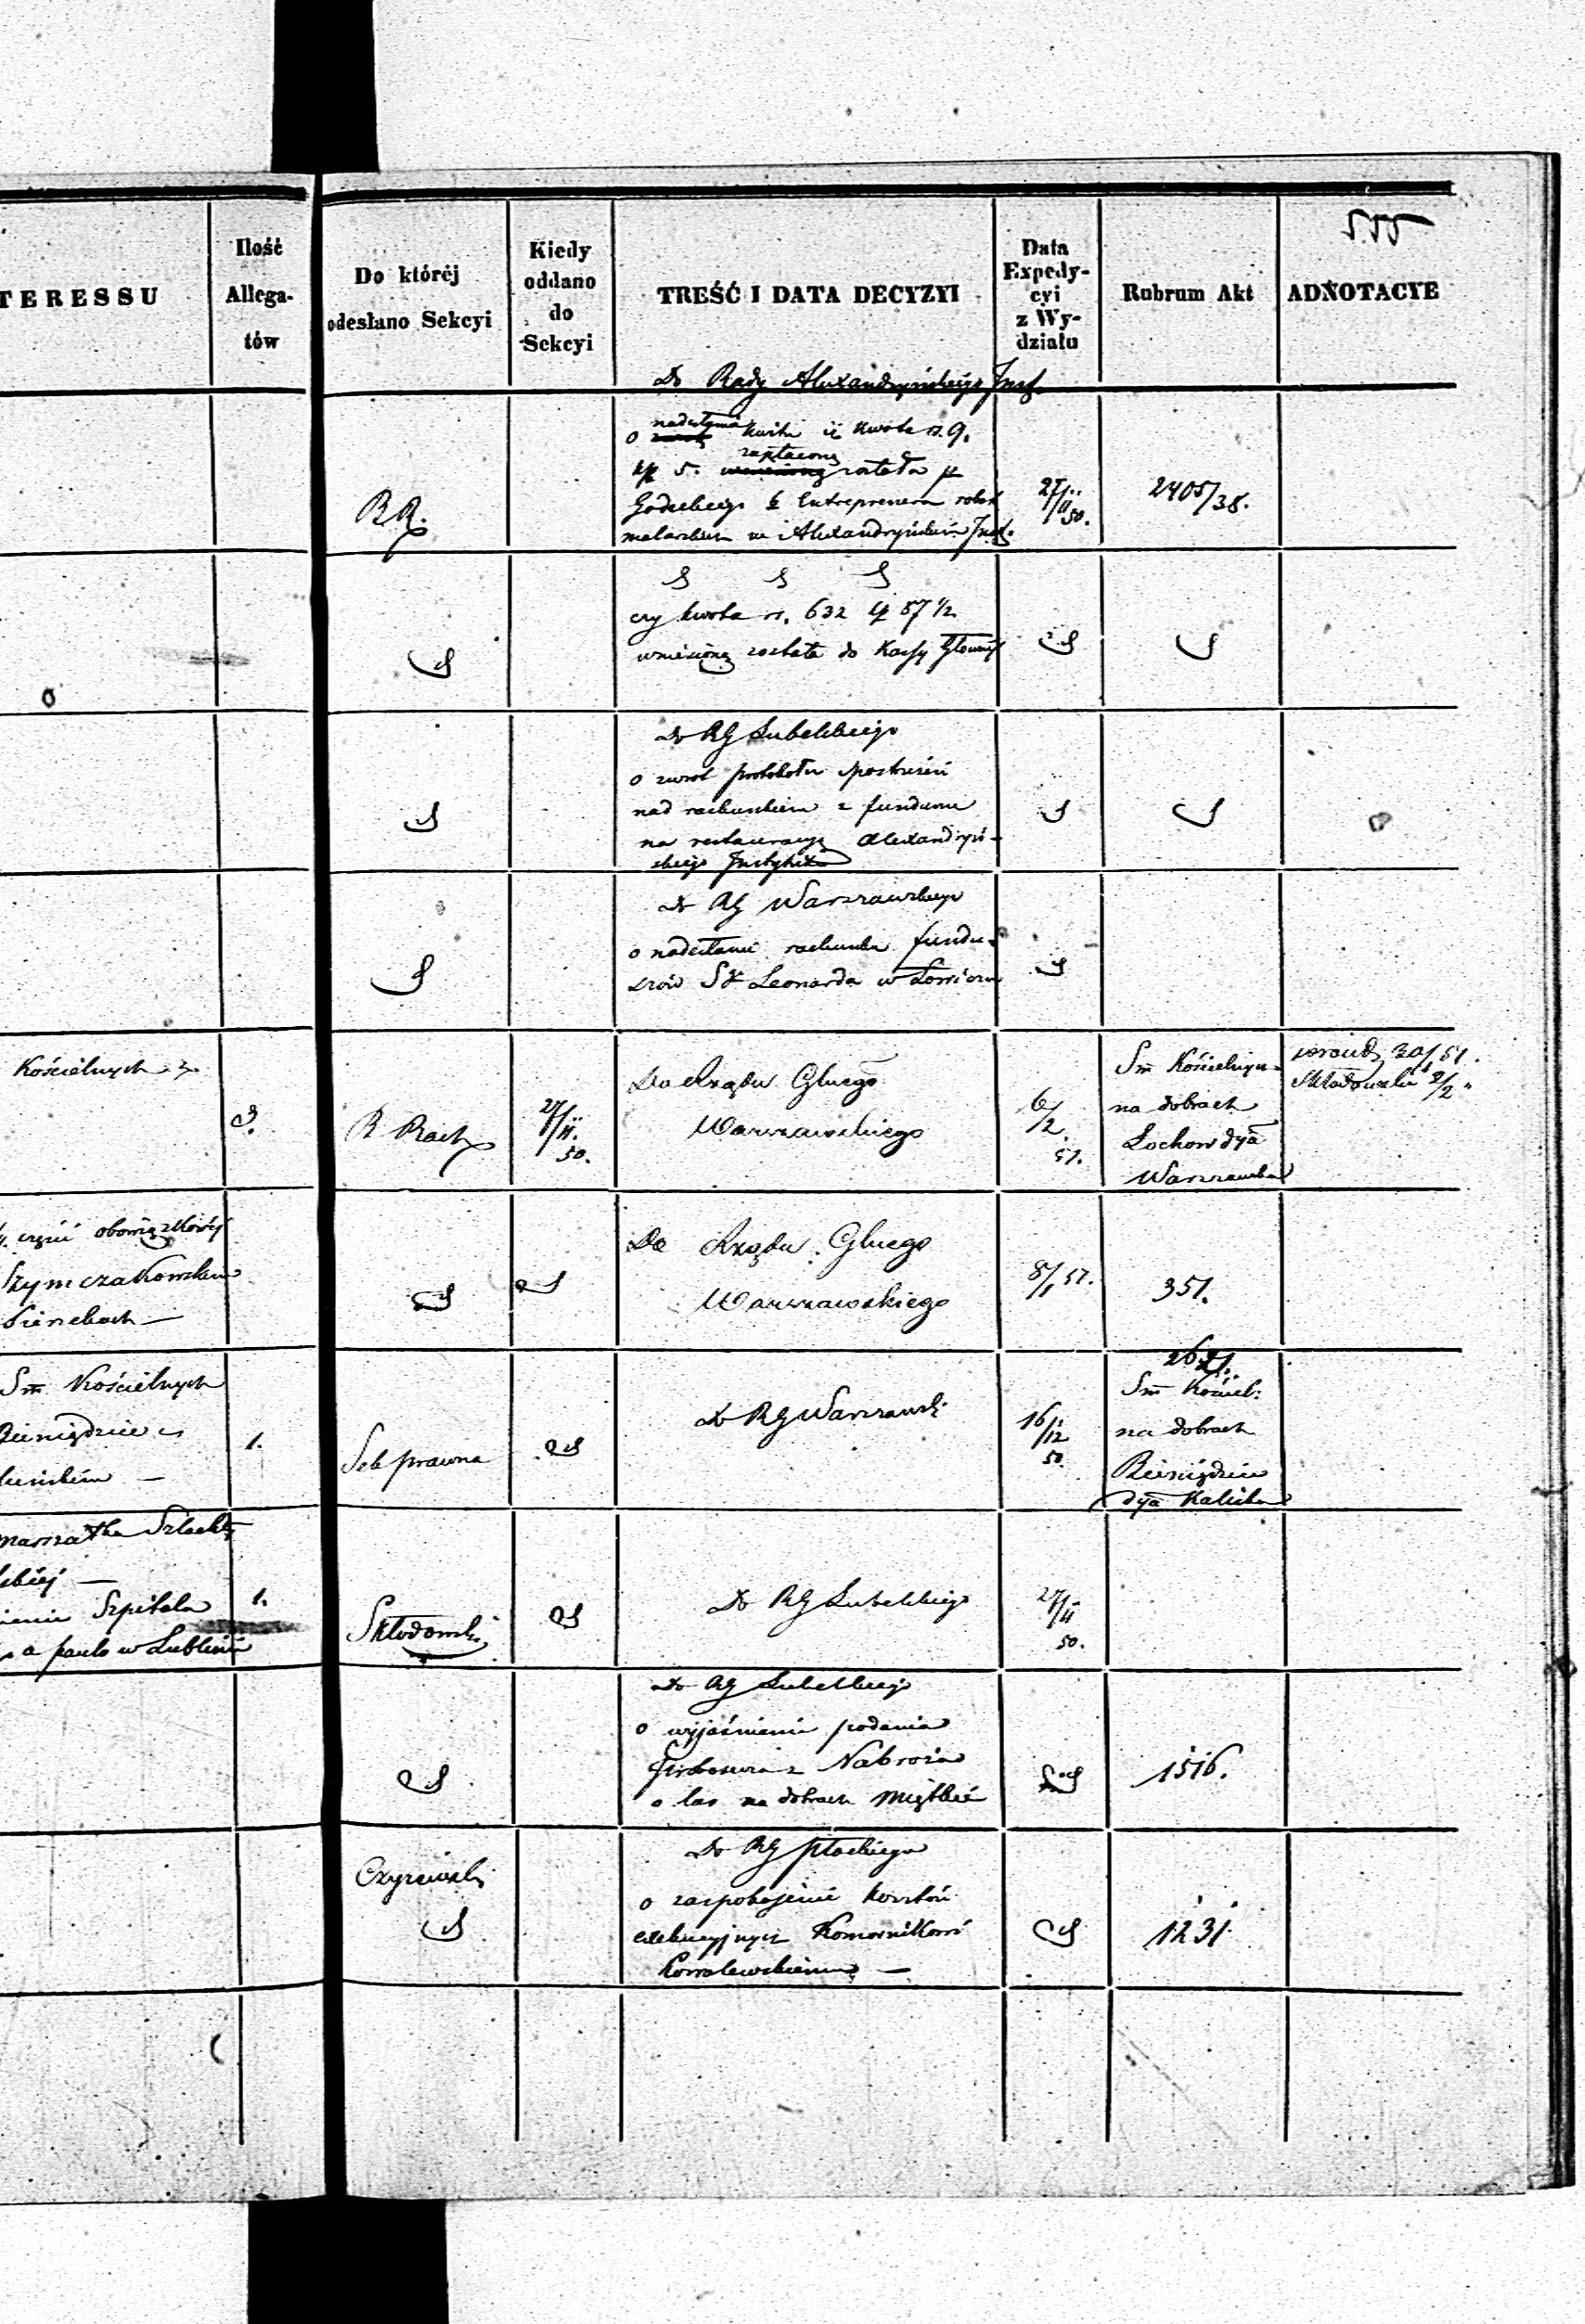 555
TERESSU
Ilość Allega- tów
Do któréj odesłano Sekcyi
Kiedy oddano do Sekcyi
TREŚĆ I DATA DECYZYI
Data Expedy- cyi z Wy- działu
Rubrum Akt
ADNOTACYE
Do Rady Alexandryńskiego Inst.
o nadesłanie kwitu iż kwota rs. 9.
kp 5. zapłaconą została
Entreprenera robót
malarskich w Alexandryńskim Inst.
R.R.
27/11 50.
2405/38.
czy kwota rs. 632 kp 57 1/2
wniesioną została do Kassy Głównéj
Do RG Lubelskiego
o zwrot protokołu spostrzeżeń
nad rachunkiem z funduszu
na restauracyę Alexandryń-
skiego Instytutu
Do RG Warszawskiego
o nadesłanie rachunku fundu-
szów St Leonarda w Łowiczu
Kościelnych
3.
R Rach
27/11. 50.
Do Rządu Gluego
Warszawskiego
6/2 51.
Sm Kościelnych
na dobrach
Łochow dya
Warszawska
30/1 51.
Składowski 2/2
część obowiązkowéj
Szymczakowskim
Do Rządu Gluego
Warszawskiego
8/1 51.
351.
Sm Kościelnych
1.
Sek prawna
Do RG Warszawski
16/12 50.
2621.
Sm Kościel:
na dobrach
dya Kaliska
Szlachty
skiéj —
Szpitala
a paulo w Lublinie
1.
Skłodowski
Do RG Lubelskiego
27/11 50.
Do RG Lubelskiego
o wyjaśnienie podania
z Nabroża
o las na dobrach Miętkie
1516.
Czyżewski
Do RG Płockiego
o zaspokojenie kosztów
exekucyjnych Komornikowi
Kowalewskiemu —
1231.